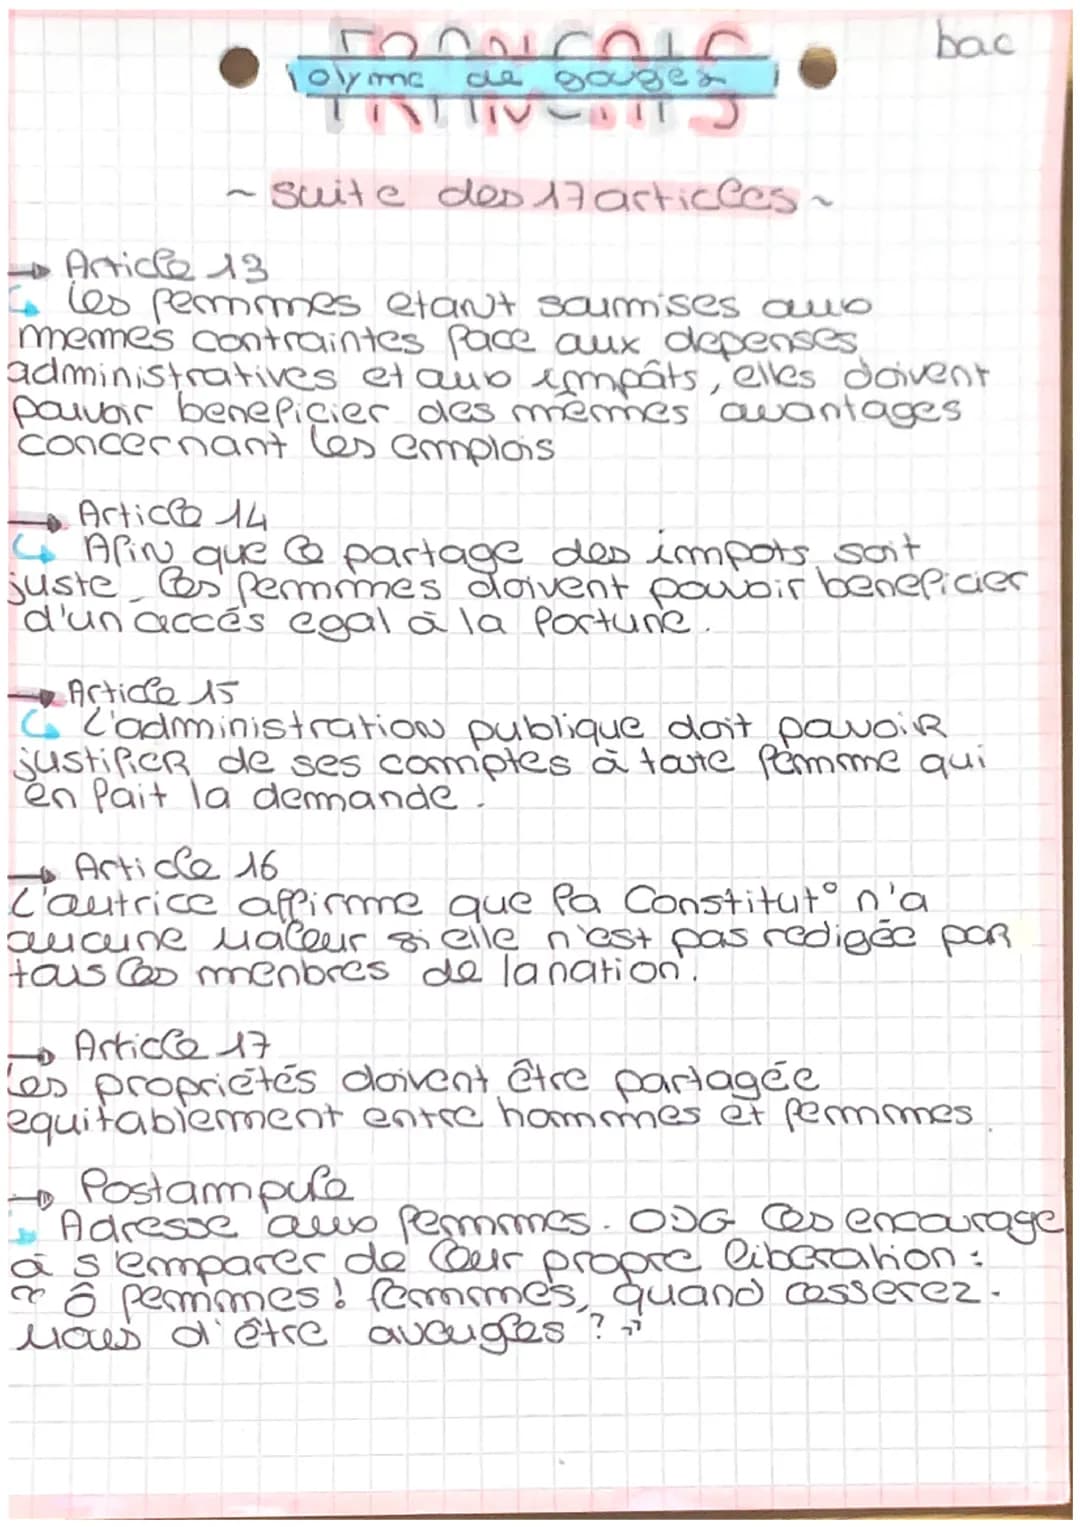 bac
FRANCAIS
olyme de gouges
~ suite des 17 articles ~
→ Article 13
↳ Les femmes etant soumises aux
memes contraintes face aux depenses
administratives et aux impâts, elles doivent
pouvoir beneficier des mêmes avantages
concernant les emplois
→ Article 14
↳ Afin que le partage des impots soit
juste, les femmes doivent pouvoir beneficier
d'un accés egal à la fortune.
→ Article 15
↳ L'administration publique doit pouvoir
justifier de ses comptes à toute femme qui
en fait la demande.
→ Article 16
L'autrice affirme que la Constitut° n'a
aucune valeur si elle n'est pas redigée par
tous les menbres de la nation.
→ Article 17
Les propriétés doivent être partagée
equitablement entre hommes et femmes.
→ Postampule
↳ Adresse aux femmes. ODG les encourage
à s'emparer de leur propre liberation :
« ô femmes ! femmes, quand cesserez-
vous d'être aveugles ? »